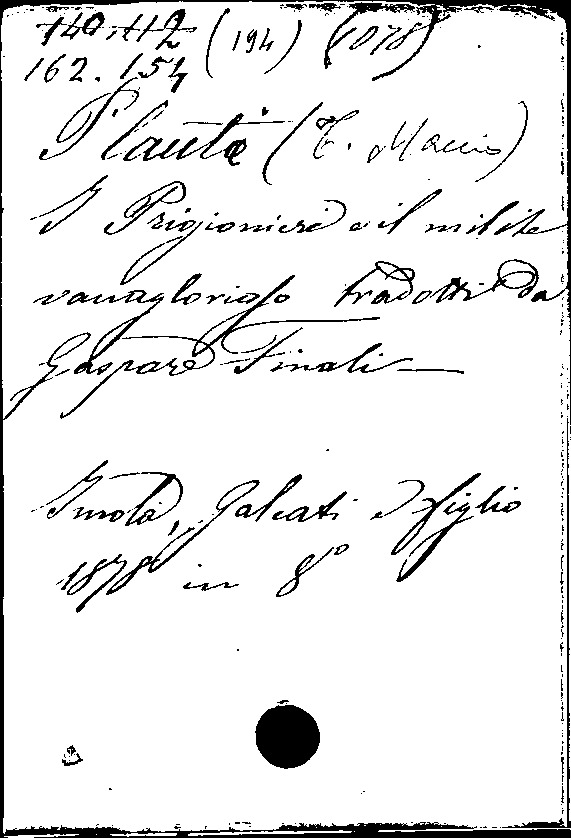 140.112 (194) (1078)
162.154
Plauto (T. Maccio)
I Prigionieri e il milite
vanaglorioso tradotti da
Gaspare Finali
Imola, Galeati e figlio
1878 in 8º